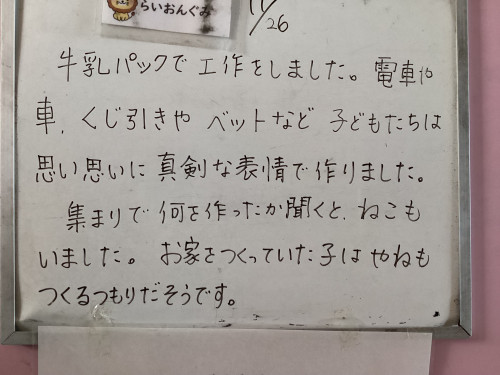 らいおんぐみ
11/26
牛乳パックで工作をしました。電車や
車、くじ引きや ベットなど 子どもたちは
思い思いに真剣な表情で作りました。
集まりで何を作ったか聞くと、ねこも
いました。お家をつくっていた子は やねも
つくるつもりだそうです。